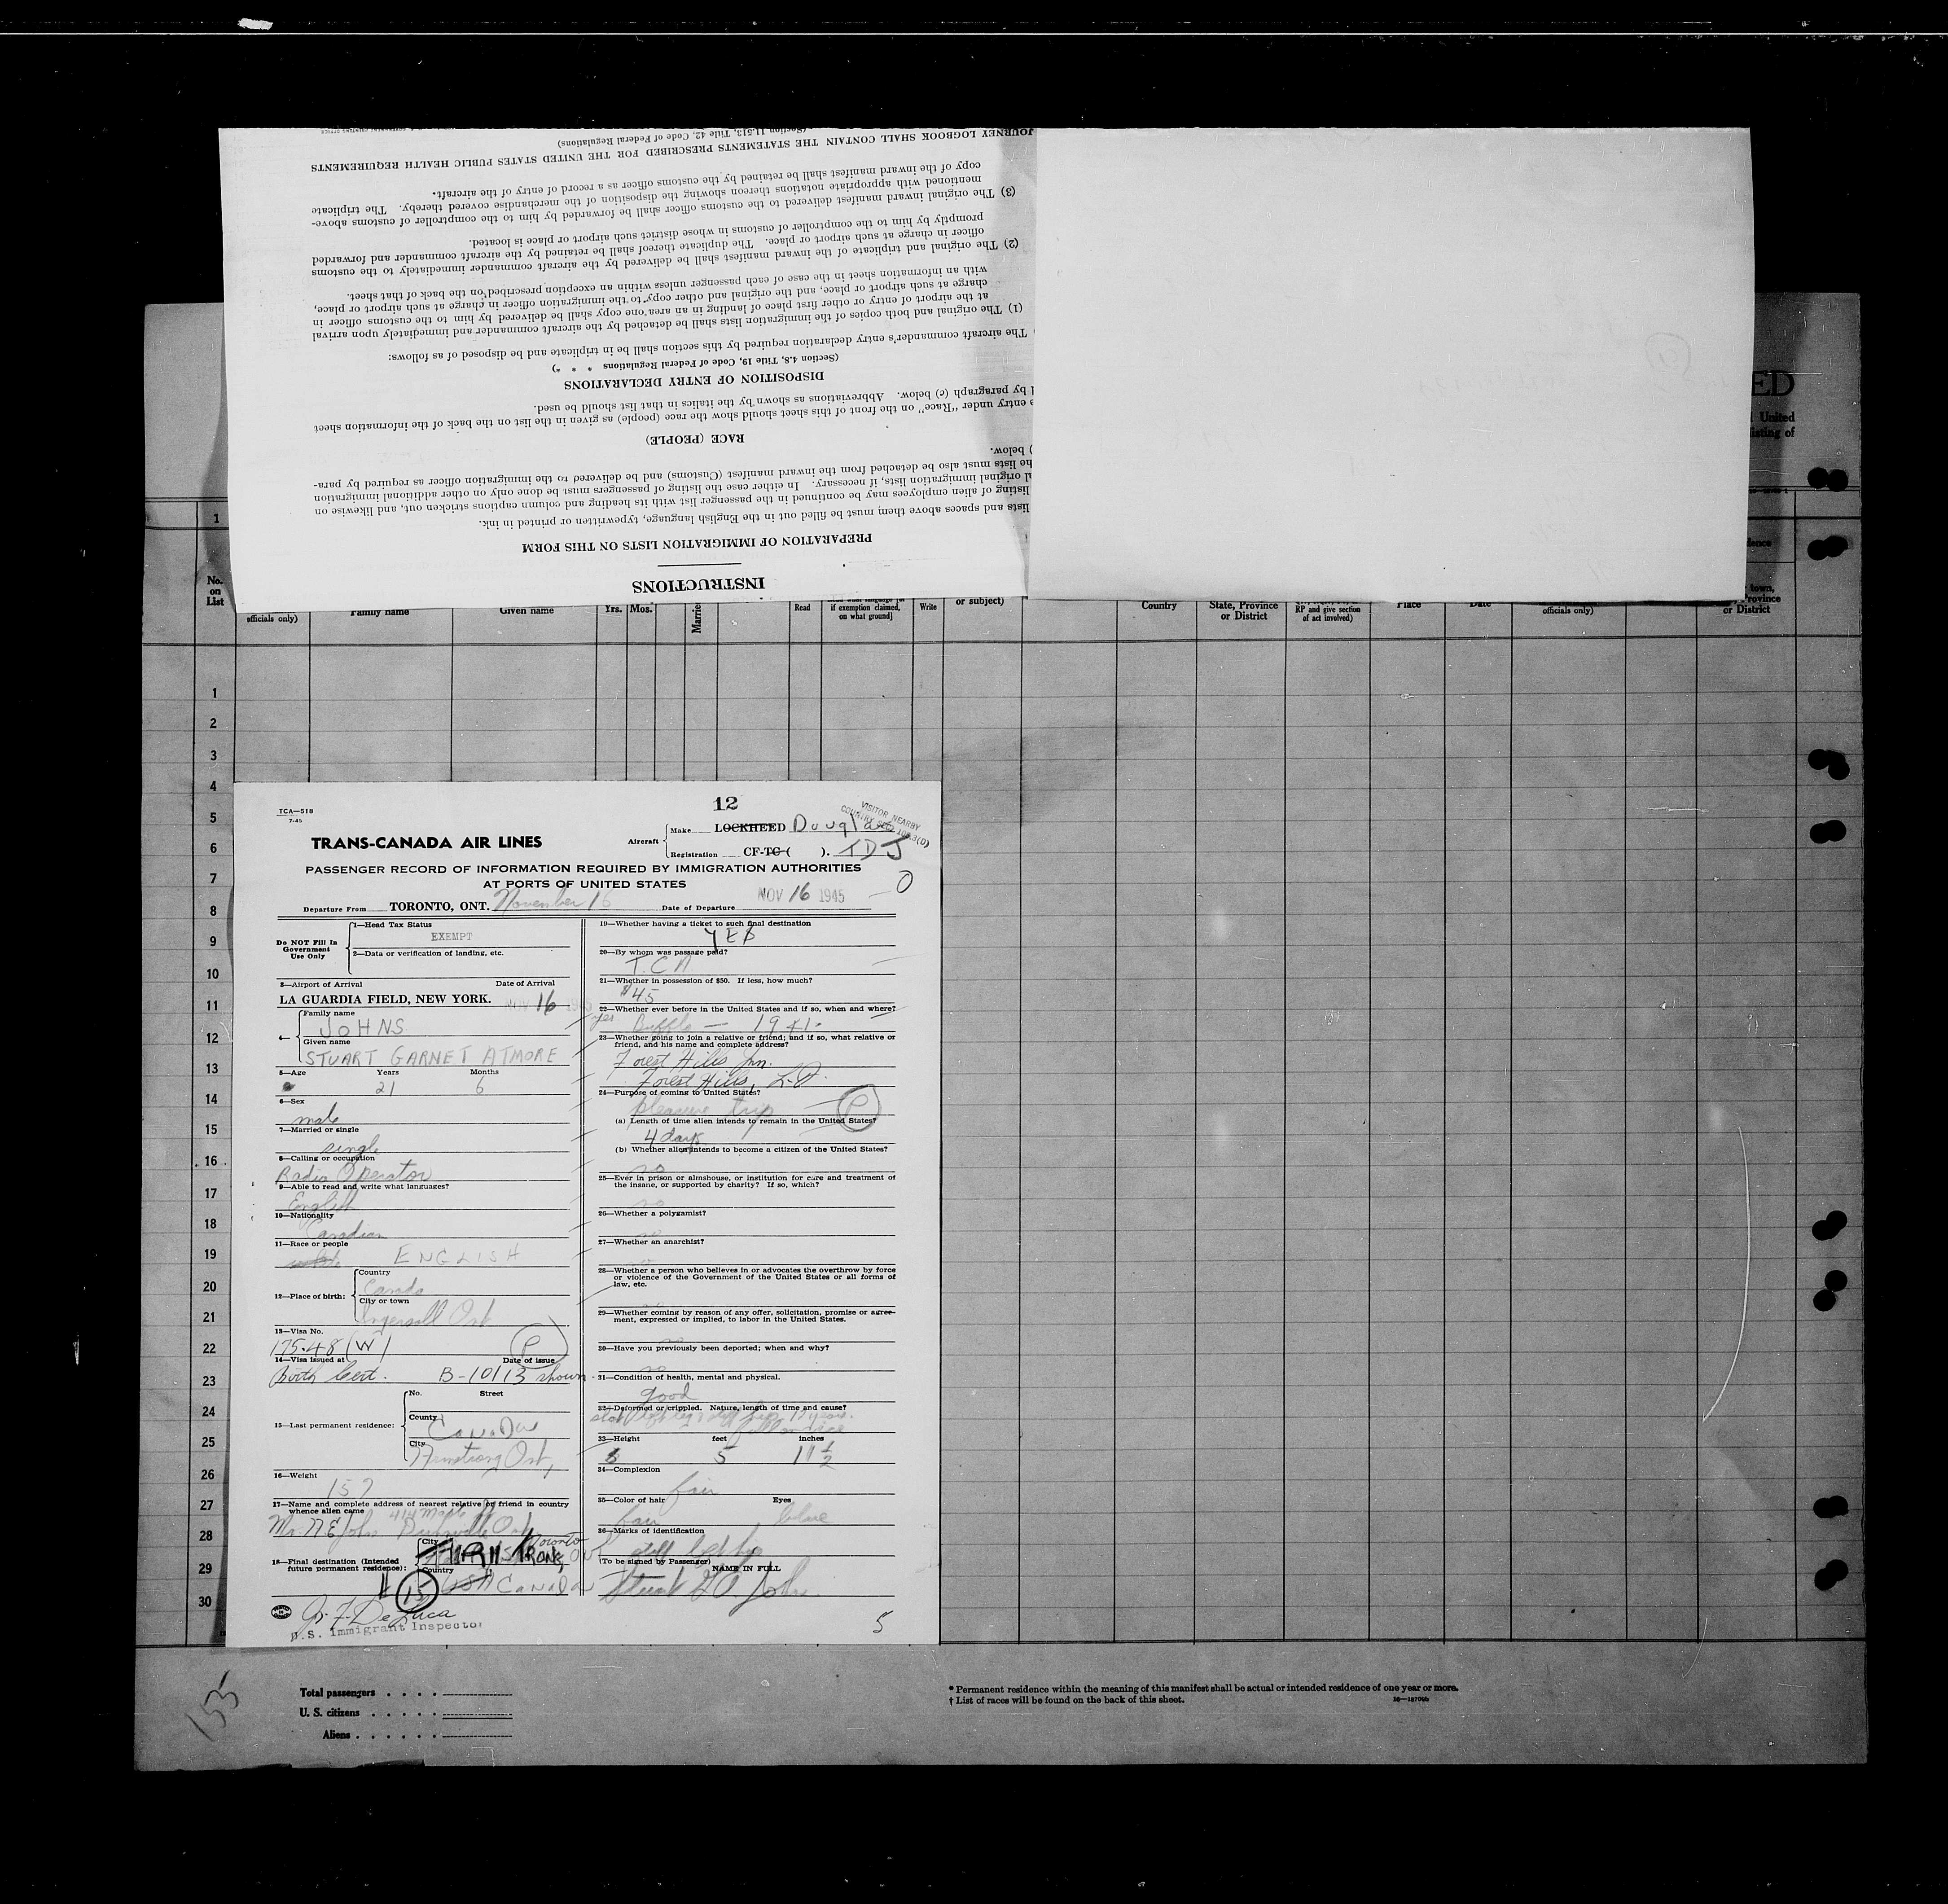 INSTRUCTIONS
PREPARATION OF IMMIGRATION LISTS ON THIS FORM
lists and spaces above them must be filled out in the English language, typewritten or printed in ink.
listing of alien employees may be continued in the passenger list with its heading and column captions stricken out, and likewise on
al original immigration lists, if necessary. In either case the listing of passengers must be done only on other additional immigration
he lists must also be detached from the inward manifest (Customs) and be delivered to the immigration officer as required by para-
) below.
RACE (PEOPLE)
e entry under "Race" on the front of this sheet should show the race (people) as given in the list on the back of the information sheet
d by paragraph (c) below. Abbreviations as shown by the italics in that list should be used.
DISPOSITION OF ENTRY DECLARATIONS
(Section 4.8, Title 19, Code of Federal Regulations * * *)
The aircraft commander's entry declaration required by this section shall be in triplicate and be disposed of as follows:
(1) The original and both copies of the immigration lists shall be detached by the aircraft commander and immediately upon arrival
at the airport of entry or other first place of landing in an area one copy shall be delivered by him to the customs officer in
charge at such airport or place, and the original and other copy to the immigration officer in charge at such airport or place,
with an information sheet in the case of each passenger unless within an exception prescribed on the back of that sheet.
(2) The original and triplicate of the inward manifest shall be delivered by the aircraft commander immediately to the customs
officer in charge at such airport or place. The duplicate thereof shall be retained by the aircraft commander and forwarded
promptly by him to the comptroller of customs in whose district such airport or place is located.
(3) The original inward manifest delivered to the customs officer shall be forwarded by him to the comptroller of customs above-
mentioned with appropriate notations thereon showing the disposition of the merchandise covered thereby. The triplicate
copy of the inward manifest shall be retained by the customs officer as a record of entry of the aircraft.
JOURNEY LOGBOOK SHALL CONTAIN THE STATEMENTS PRESCRIBED FOR THE UNITED STATES PUBLIC HEALTH REQUIREMENTS
(Section 11.513, Title 42, Code of Federal Regulations)
ED
United
listing of
1
No. on List
officials only)
Family name
Given name
Yrs. Mos.
Read
if exemption claimed, on what ground]
Write
or subject)
Country
State, Province or District
RP and give section of act involved)
Place
Date
officials only)
town, Province or District
1
2
3
4
5
6
7
8
9
10
11
12
13
14
15
16
17
18
19
20
21
22
23
24
25
26
27
28
29
30
TCA—518
7-45
12
VISITOR NEARBY
TRANS-CANADA AIR LINES
Aircraft
Make LOCKHEED Douglas
Registration CF-TC ( ). TDJ
PASSENGER RECORD OF INFORMATION REQUIRED BY IMMIGRATION AUTHORITIES
AT PORTS OF UNITED STATES
0
Departure From TORONTO, ONT. November 16 Date of Departure NOV 16 1945
Do NOT Fill In Government Use Only
1—Head Tax Status
EXEMPT
2—Data or verification of landing, etc.
3—Airport of Arrival Date of Arrival
LA GUARDIA FIELD, NEW YORK. NOV 16 1945
4—
Family name
JOHNS
Given name
STUART GARNET ATMORE
5—Age Years Months
21 6
6—Sex
male
7—Married or single
single
8—Calling or occupation
Radio Operator
9—Able to read and write what languages?
English
10—Nationality
Canadian
11—Race or people
ENGLISH
12—Place of birth:
Country
Canada
City or town
Ingersoll Ont
13—Visa No.
175.48 (W) P
14—Visa issued at Date of issue
Birth Cert. B-10113 shown
15—Last permanent residence:
No. Street
County
Canada
City
Armstrong Ont,
16—Weight
157
17—Name and complete address of nearest relative or friend in country
whence alien came
414 Maple
18—Final destination (Intended
future permanent residence):
City Toronto
Country
USA Canada
15
U.S. Immigrant Inspector
19—Whether having a ticket to such final destination
YES
20—By whom was passage paid?
T.C.A.
21—Whether in possession of $50. If less, how much?
$45
22—Whether ever before in the United States and if so, when and where?
yes Buffalo — 1941.
23—Whether going to join a relative or friend; and if so, what relative or
friend, and his name and complete address?
Forest Hills Inn
Forest Hills, L.I.
24—Purpose of coming to United States?
pleasure trip P
(a) Length of time alien intends to remain in the United States?
4 days
(b) Whether alien intends to become a citizen of the United States?
no
25—Ever in prison or almshouse, or institution for care and treatment of
the insane, or supported by charity? If so, which?
no
26—Whether a polygamist?
no
27—Whether an anarchist?
28—Whether a person who believes in or advocates the overthrow by force
or violence of the Government of the United States or all forms of
law, etc.
29—Whether coming by reason of any offer, solicitation, promise or agree-
ment, expressed or implied, to labor in the United States.
no
30—Have you previously been deported; when and why?
no
31—Condition of health, mental and physical.
good
32—Deformed or crippled. Nature, length of time and cause?
33—Height feet inches
5 11 ½
34—Complexion
fair
35—Color of hair Eyes
fair blue
36—Marks of identification
stiff left hip
(To be signed by Passenger) NAME IN FULL
Stuart G A Johns
5
155
Total passengers
U. S. citizens
Aliens
* Permanent residence within the meaning of this manifest shall be actual or intended residence of one year or more.
† List of races will be found on the back of this sheet.